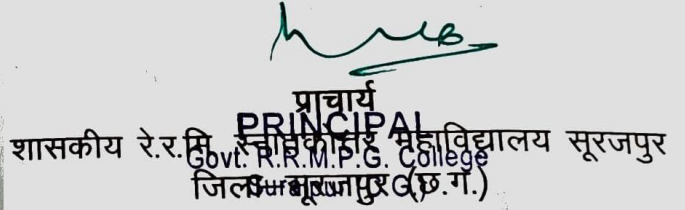 प्राचार्य
PRINCIPAL
शासकीय रे.र.मि. स्नातकोत्तर महाविद्यालय सूरजपुर
Govt. R.R.M.P.G. College
जिला-सूरजपुर (छ.ग.)